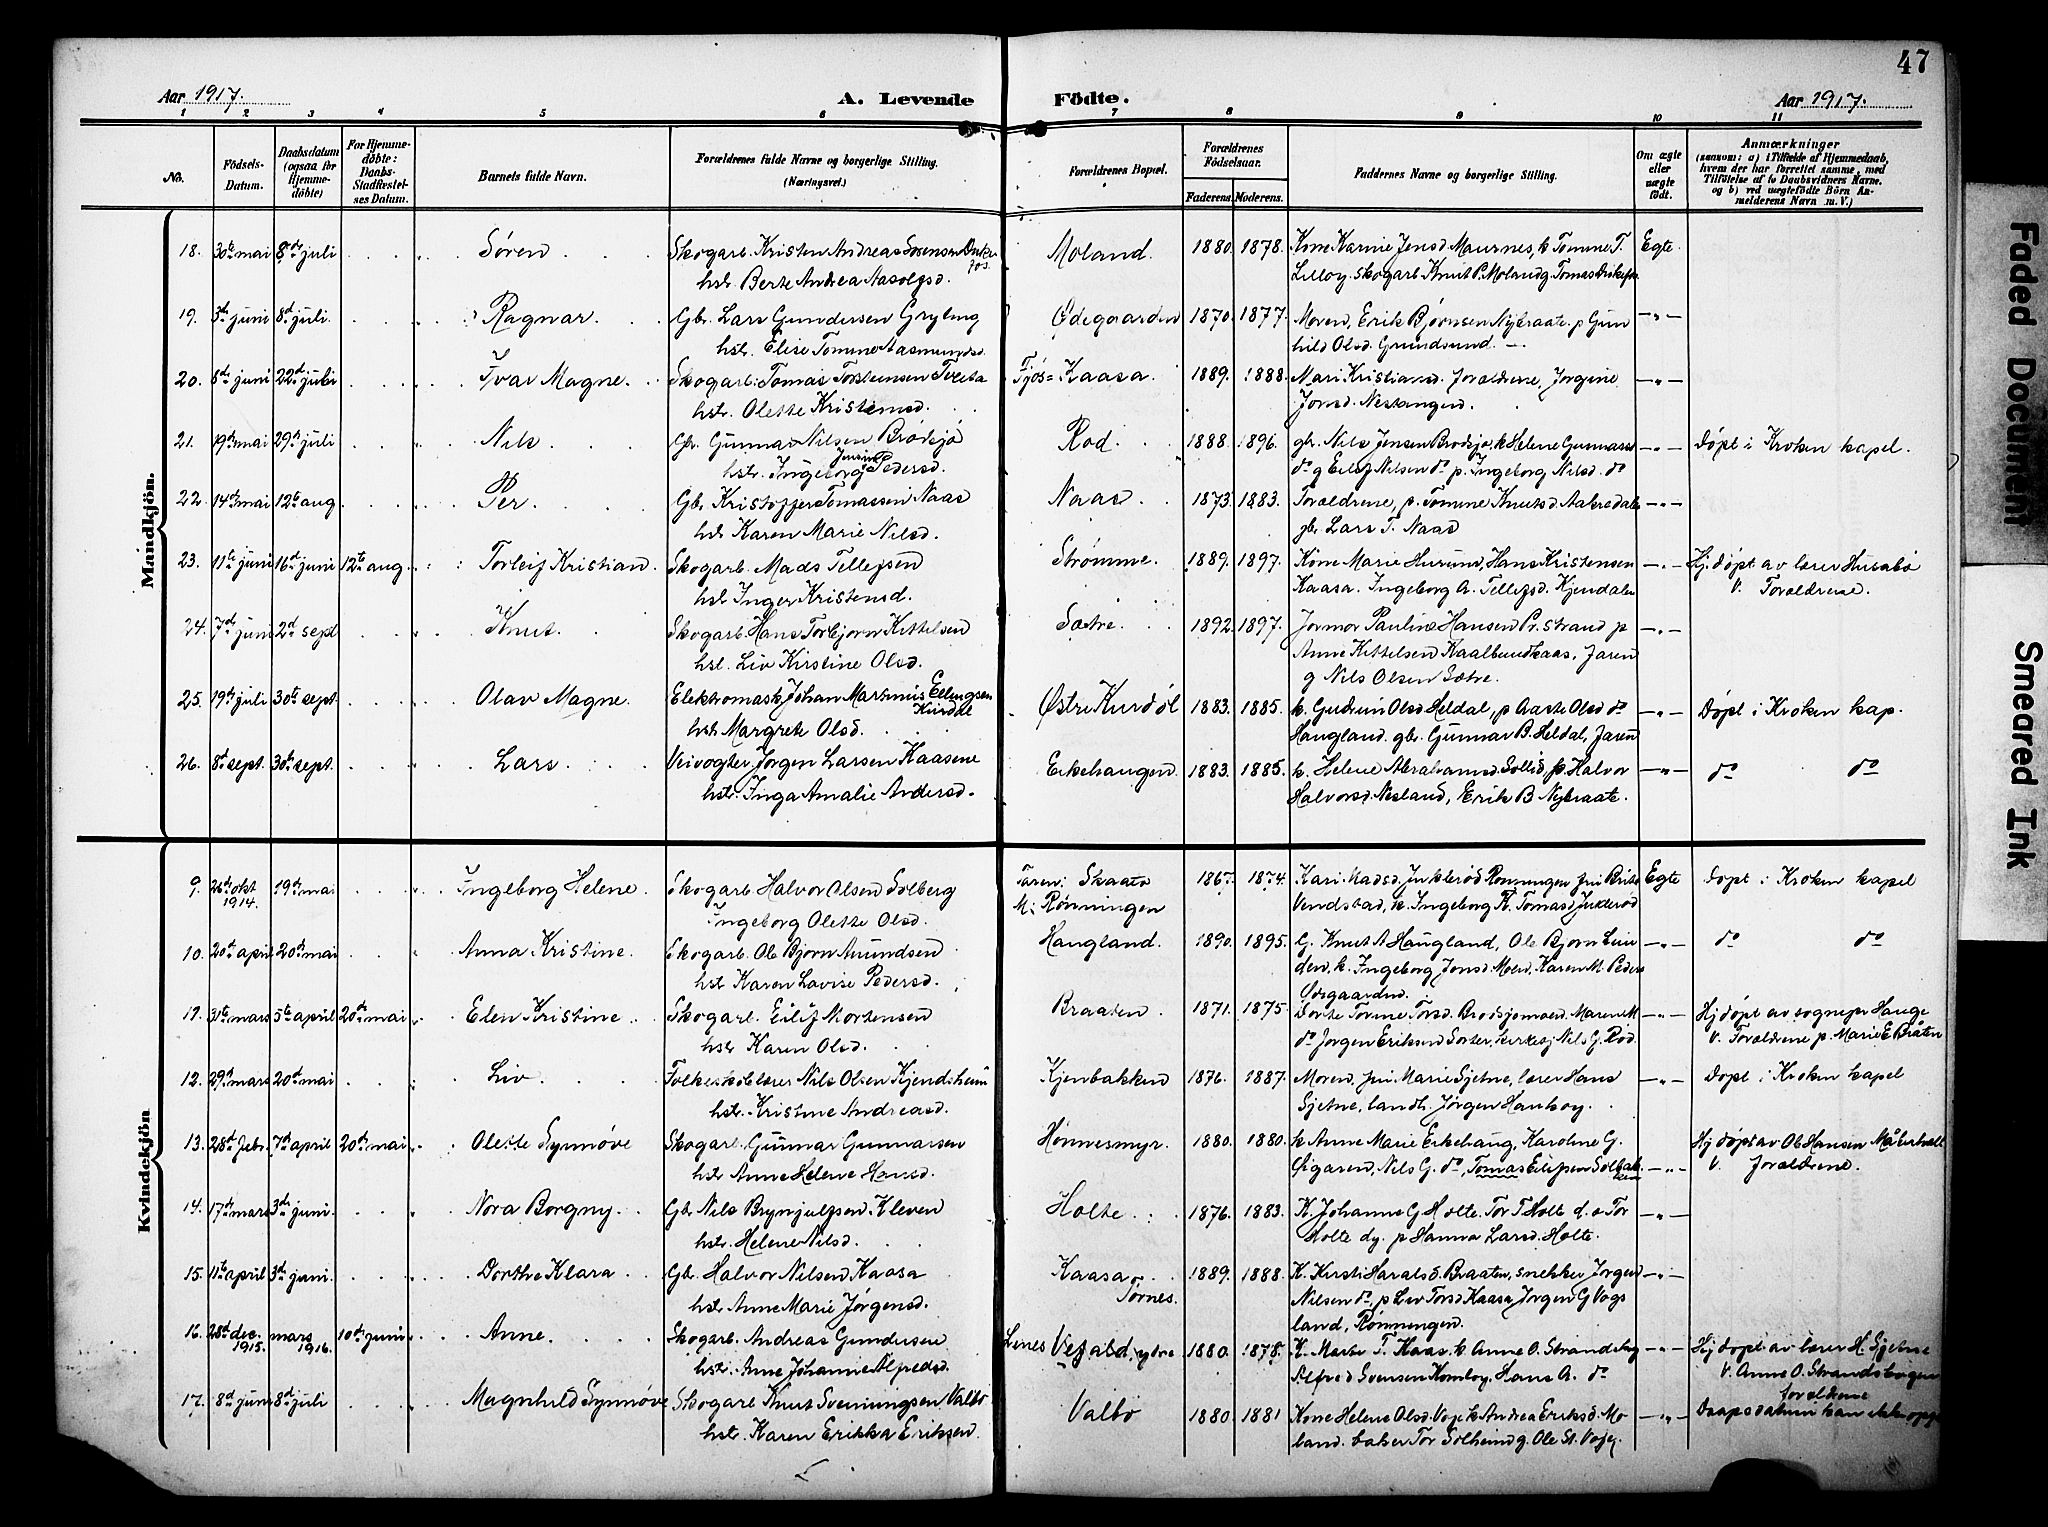 47
Aar 1917.
A. Levende
Födte.
Aar 1917.
1 2 3 4 5 6 7 8 9 10 11
No.
Födsels-
Datum.
Daabsdatum
(ogsaa for
Hjemme-
döbte)
For Hjemme-
döbte:
Daabs-
Stadfæstel-
ses Datum.
Barnets fulde Navn.
Forældrenes fulde Navne og borgerlige Stilling.
(Næringsvei.)
Forældrenes Bopæl.
Forældrenes
Födselsaar.
Faderens.
Moderens.
Faddernes Navne og borgerlige Stilling.
Om ægte
eller
uægte
födt.
Anmærkninger
(saasom: a) i Tilfælde af Hjemmedaab,
hvem der har forrettet samme, med
Tilföielse af to Daabsvidners Navne,
og b) ved uægtefödte Börn An-
melderens Navn m. V.)
Mandkjön.
18. 30te mai 8de juli Søren Skogarb. Kristen Andreas Sørensen
hstr. Berte Andrea Aasolfsd. Moland. 1880. 1878. Kone Karine Jensd. Maurnes, k Tomine T.
Lilloy. skogarb Knut P. Moland g Tomas Egte
19. 3de juni 8de juli. Ragnar. Gbr. Lars Gundersen Gryting
hstr. Elise Tomine Aasmundsd. Ødegaarden 1870. 1877. Moren, Erik Bjørnsen Nybraate. p Gun
hild Olsd. Grundsund. —"—
20. 6de juni 22de juli Ivar Magne. Skogarb. Tomas Torstensen Tveita
hstr. Olette Kristensd. Fjøs= Kaasa. 1889. 1888. Mari Kristiansd. Foraldrene, Jorgine
Jonsd. Nestangen. —"—
21. 19de mai 29de juli Nils Gbr. Gunnar Nilsen Brødsjø
hstr. Ingeborg Pedersd. Rod 1888. 1896. gbr. Nils Jensen Brodsjø, k Helene Gunnarsd.
do g Eilef Nilsen do p. Ingeborg Nilsd. do —"— Døpt i Kroken kapel.
22. 14de mai 12te aug Per Gbr Kristoffer Tomassen Naas
hstr Karen Marie Nilsd. Naas. 1873. 1883. Foraldrene, p. Tomine Knutsd.
gbr Lars T. Naas —"—
23. 11te juni 16de juni 12te aug Torleif Kristian Skogarb. Mads Tellefsen
hstr Inger Kristensd. Strømme. 1889. 1897. Kone Marie Husund, Hans Kristensen
Kaasa. Ingeborg A. Tellefsd. Kjendalen —"— Hj. døpt av lærer Husabø
V. Foraldrene.
24. 7de juni 2de sept Knut. Skogarb. Hans Torbjørn Kittelsen
hst. Liv Kirstine Olsd. Sætre. 1892. 1897. Jormor Pauline Hansen Pr. strand p
Anne Kittelsen Kaalbundkaas, Faren
g Nils Olsen Sætre. —"—
25. 19de juli 30te sept. Olav Magne Elektromask Johan Martinius Ellingsen
Kurdøl
hstr Margrete Olsd. Østre Kurdøl 1883. 1885. k. Gudrun Olsd Heldal, p Aaste Olsd do
Haugland. gbr. Gunnar B. Heldal, Faren —"— Døpt i Kroken kap.
26. 8de sept. 30te sept. Lars Veivogter Jørgen Larsen Kaasene
hstr. Inga Amalie Andersd. Eikehaugen 1883. 1885. k. Helene Abrahamsd. Sollid p. Halvor
Halvorsd Nesland, Erik B Nybraate. —"— do do
Kvindekjön
9. 26de okt
1914. 19de mai Ingeborg Helene. Skogarb. Halvor Olsen Solberg
Ingeborg Olette Olsd. Faren: Skaato
M: Rønningen 1867. 1874. Kari Madsd. Rønningen
Vendstad, k. Ingeborg K. Tomasd. Egte Døpt i Kroken kapel
10. 20de april 20de mai Anna Kristine. Skogarb. Ole Bjørn Amundsen
hstr Karen Lovise Pedersd. Haugland. 1890. 1895. G. Knut A Haugland, Ole Bjørn Lin
den, k. Ingeborg Jonsd. Moen. Karen M. Peders
—"— do do
11. 31te mars 5te april 20de mai Elen Kristine Skogarb. Eilif Mortensen
hstr Karen Olsd. Braaten. 1871. 1875. Dorte Tomine Torsd. Brodsjømoen. Maren M
do Jørgen Eriksen Sorter, kirkesj Nils G. Rød. —"— Hj døpt av sognepr Hauge
V. Foraldrene p. Marie E Bråten
12. 29de mars 20de mai Liv. Folkeskolelærer Nils Olsen Kjendsheim
hstr. Kristine Andreasd. Kjenbakken 1876. 1887. Moren, frn Marie Sjetne, lærer Hans
Sjetne, landh. Jørgen Haukøy. —"— Døpt i Kroken kapel
13. 28de febr. 7de april 20de mai Olette Synnøve Skogarb. Gunnar Gunnarsen
hstr Anne Helene Hansd. Hønnesmyr. 1880. 1880. k Anne Marie Eikehaug, Karoline G.
Øigaren, Nils G. do, Tomas Eilifsen —"— Hj døpt av Ole Hansen
V. foraldrene.
14. 17de mars 3de juni. Nora Borgny. Gbr Nils Brynjulfsen Kleven
hstr. Helene Nilsd. Holte 1876. 1883. K. Johanne G Holte. Tor T Holte d. o Tor
Holte dy. p Hanna Larsd. Holte. —"—
15. 11te april 3de juni. Dorthe Klara Gbr. Halvor Nilsen Kaasa
hstr Anne Marie Jørgensd. Kaasa
Tørnes. 1889. 1888. K. Kirsti Haralsd. Braaten, snekker Jørgen
Nilsen do, p Liv Torsd Kaasa, Jørgen G Vogs
land, Rønningen. —"—
16. 28de dec.
1915. mars
1916. 10de juni Anne. Skogarb. Andreas Gundersen
hstr. Anne Johanne Alfredsd. Lines Vefald, ydre 1880. 1878. K. Marte T. Kaas. k Anne O. Strandsbug
Alfred Svensen Homboy, Hans A. do —"— Hj døpt av lærer H. Sjetne
V. Anne O. Strandsbugen
foraldrene
17. 8de juni 8de juli Magnhild Synnøve Skogarb Knut Svenningsen Valbø
hstr. Karen Erikka Eriksen. Valbø 1880. 1881 Kone Helene Olsd. Voje k Andrea Eriksd. Mo
land. baker Tor Solheim g. Ole St. Voje. —"— Daapsdatum kan ikke
Faded Document
Smeared Ink